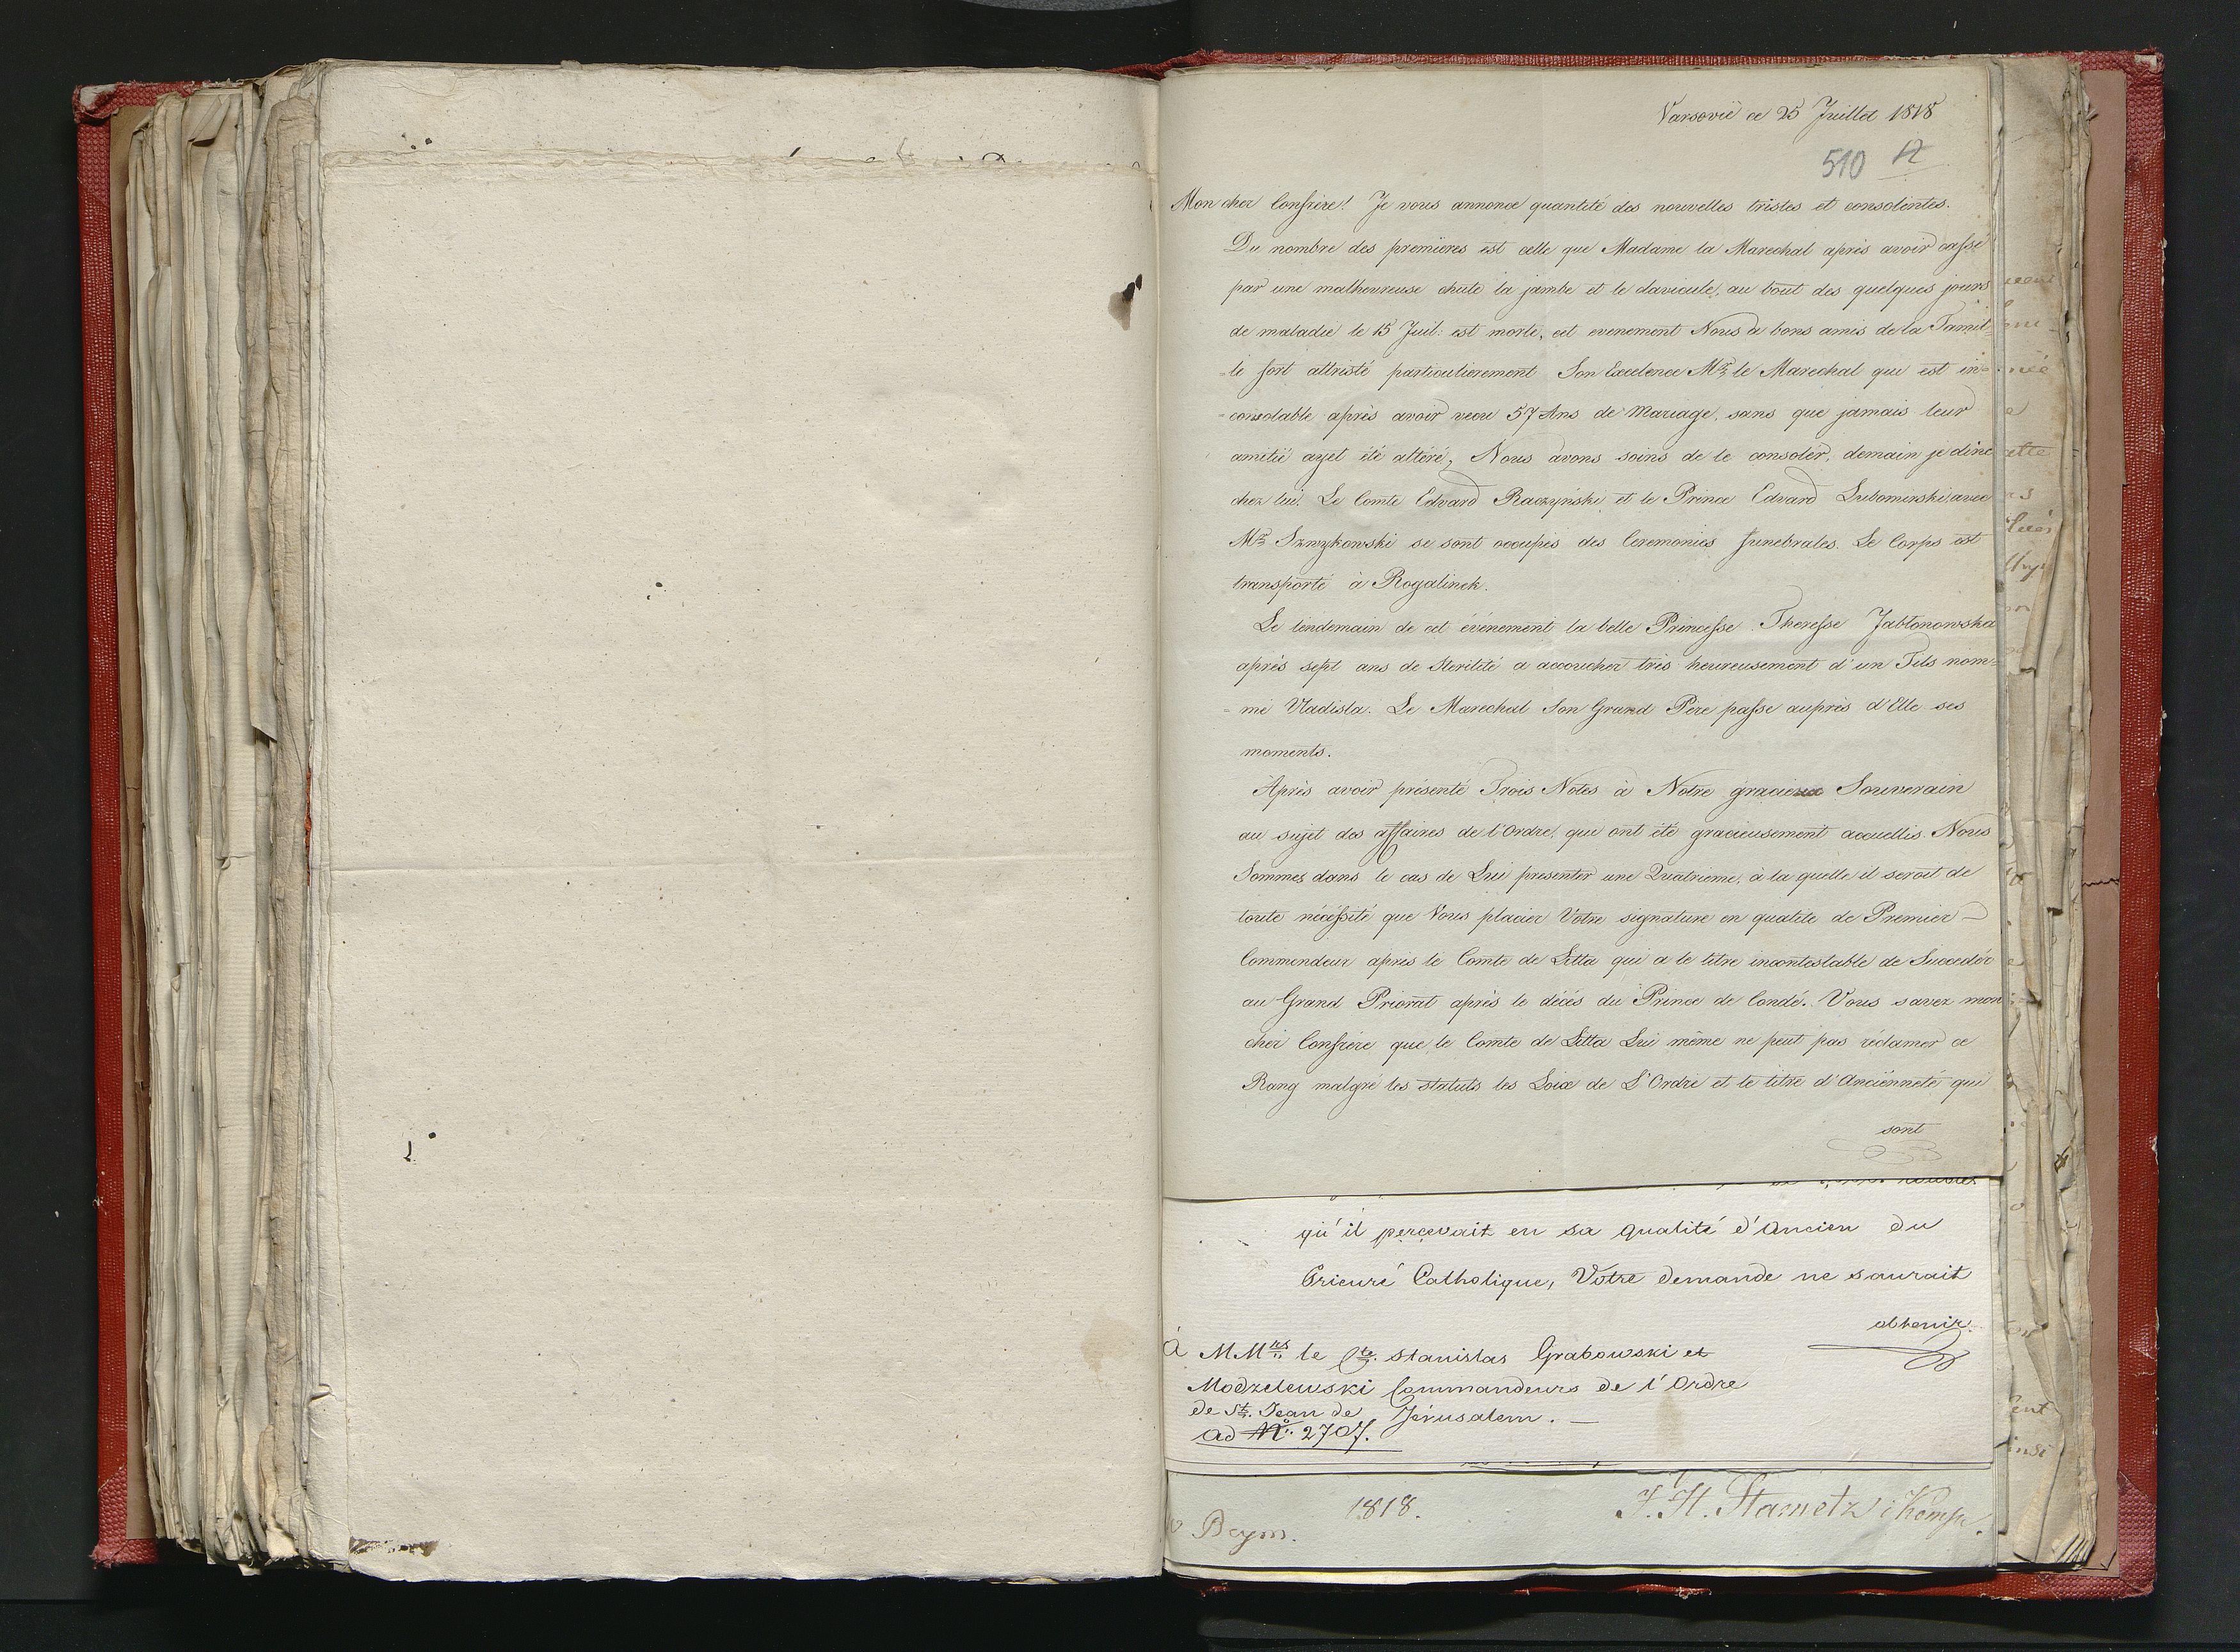 Varsovie ce 25 Juillet 1818
510 12
Mon cher Confrere! Je vous annonce quantité des nouvelles tristes et consolentes.
Du nombre des premières est celle que Madame la Marechal après avoir cassé
par une malheureuse chute la jambe et le clavicule, au bout des quelques jours
de maladie le 15 Juil: est morte, cet evenement Nous a bons amis de la Famil
=le fort attristé particulierement Son Excelence Mr le Marechal qui est in=
=consolable après avoir vecu 57 Ans de Mariage, sans que jamais leur
amitié ayet été altéré, Nous avons soins de le consolér, demain je dine
chez lui. Le Comte Edvard Raczyński, et le Prince Edvard Lubomirski avec
Mr Szmykowski se sont occupés des Ceremonies funebrales. Le Corps est
transporté à Rogalinek.
Le lendemain de cet événement la belle Princesse Theresse Jabłonowska
après sept ans de Sterilité a accoucher très heureusement d'un Fils nom=
=mé Vladisla. Le Marechal Son Grand Père passe auprès d'Elle ses
moments.
Après avoir présenté Trois Notes à Notre gracieux Souverain
au sujet des affaires de l'Ordre, qui ont été gracieusement accuellis. Nous
Sommes dans le cas de Lui presenter une Quatrieme, à la quelle il seroit de
toute nécéssité que Vous placier Votre signature en qualité de Premier
Commendeur après le Comte de Litta qui a le titre incontestable de Succedér
au Grand Priorat après le décés du Prince de Condé. Vous savez mon
cher Confrère que le Comte de Litta Lui même ne peut pas réclamer ce
Rang malgré les statuts les Loix de L'Ordre et le titre d'Anciènneté qui
sont
qu'il percevait en sa qualité d'Ancien du
Prieuré Catholique, Votre demande ne saurait
obtenir.
à MMrs le Cte. Stanislas Grabowski et
Modzelewski Commandeurs de l'Ordre
de St. Jean de Jérusalem. —
ad No. 2707.
1818.
J. H. Stametz i Komp.
Beym.